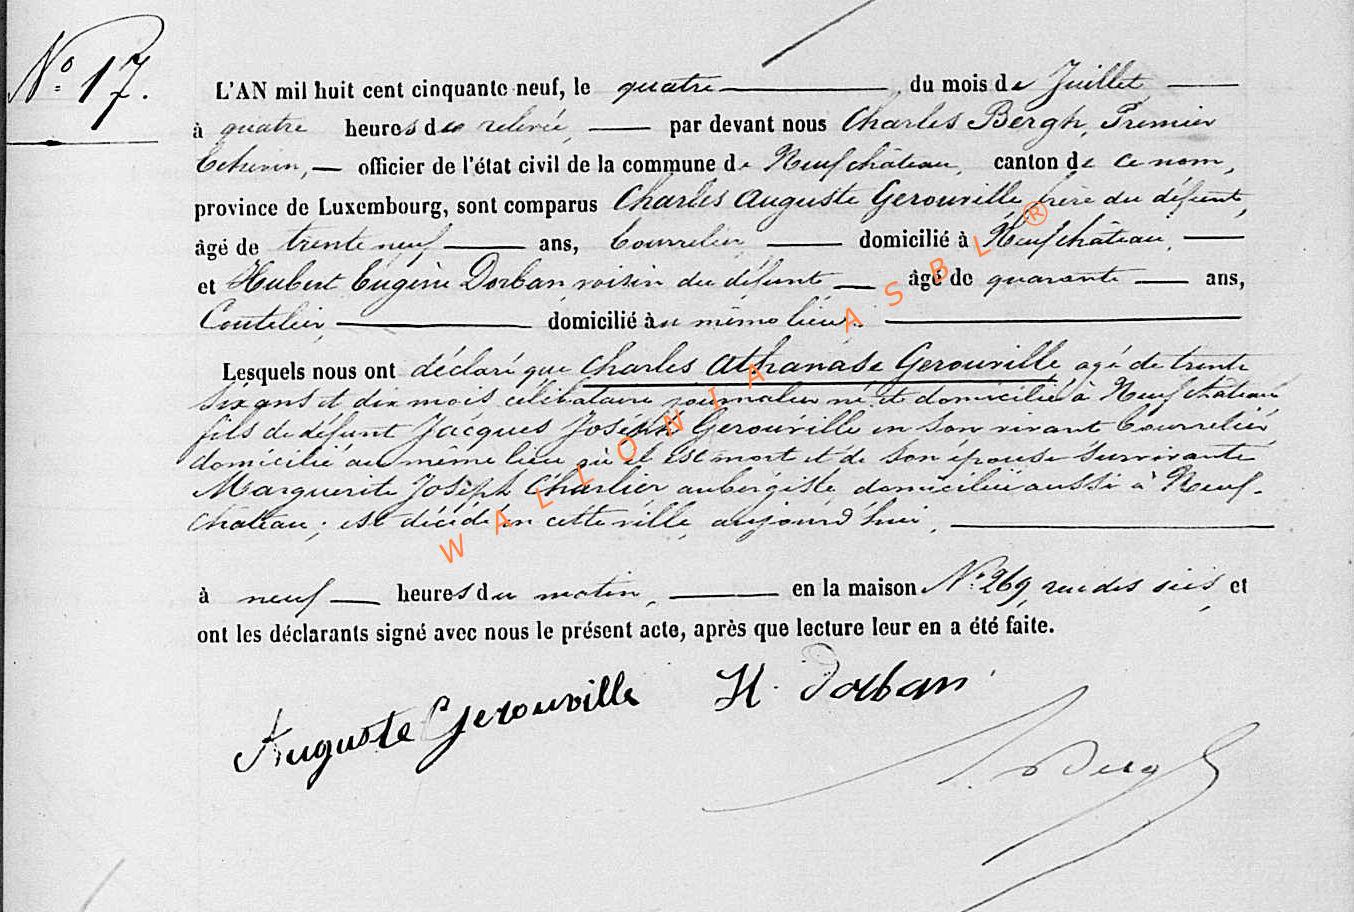 N° 17.
L'AN mil huit cent cinquante neuf, le quatre du mois de Juillet
à quatre heures de relevée, par devant nous Charles Bergh, Premier
Echevin, officier de l'état civil de la commune de Neufchâteau, canton de ce nom,
province de Luxembourg, sont comparus Charles Auguste Gerouville frère du défunt,
âgé de trente neuf ans, bourrelier domicilié à Neufchâteau,
et Hubert Eugène Dorban, voisin du défunt âgé de quarante ans,
Coutelier, domicilié au même lieu.
Lesquels nous ont déclaré que Charles Athanase Gerouville, agé de trente
six ans et dix mois célibataire journalier né et domicilié à Neufchâteau
fils de défunt Jacques Joseph Gerouville en son vivant bourrelier
domicilié au même lieu où il est mort et de son épouse survivante
Marguerite Joseph Charlier, aubergiste domiciliée aussi à Neuf-
château; est décédé en cette ville, aujourd'hui,
à neuf heures du matin, en la maison N° 269, rue des et
ont les déclarants signé avec nous le présent acte, après que lecture leur en a été faite.
Auguste Gerouville H. Dorban
Bergh
WALLONIA ASBL ®